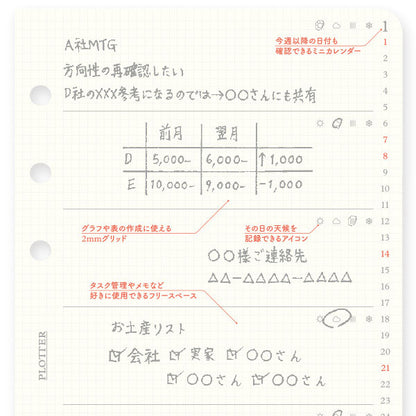 今週以降の日付も
確認できるミニカレンダー
A社MTG
方向性の再確認したい
D社のXXX参考になるのでは→○○さんにも共有
前月 翌月
D 5,000- 6,000- ↑1,000
E 10,000- 9,000- -1,000
グラフや表の作成に使える
2mmグリッド
その日の天候を
記録できるアイコン
○○様ご連絡先
△△-△△△△-△△△△
タスク管理やメモなど
好きに使用できるフリースペース
お土産リスト
会社 実家 ○○さん
○○さん ○○さん
PLOTTER
1
1
2
3
4
5
6
7
8
9
10
11
12
13
14
15
16
17
18
19
20
21
22
23
24